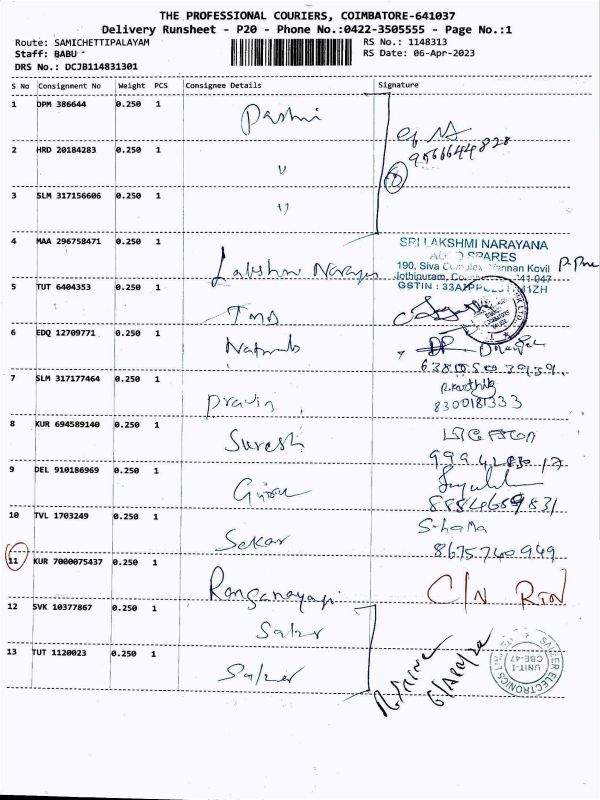 THE PROFESSIONAL COURIERS, COIMBATORE-641037
Delivery Runsheet - P20 - Phone No.:0422-3505555 - Page No.:1
Route: SAMICHETTIPALAYAM
RS No.: 1148313
Staff: BABU
RS Date: 06-Apr-2023
DRS No.: DCJB114831301
S No Consignment No Weight PCS Consignee Details Signature
1 DPM 386644 0.250 1
2 HRD 20184283 0.250 1 "
8
3 SLM 317156606 0.250 1 "
4 MAA 296758471 0.250 1 Lakshmi Narayana
SRI LAKSHMI NARAYANA
AUTO SPARES
190, Siva Complex, Vannan Kovil
Jothipuram,
GSTIN :
5 TUT 6404353 0.250 1
6 EDQ 12709771 0.250 1
7 SLM 317177464 0.250 1 Pravin
R.Karthik
8300181333
8 KUR 694589140 0.250 1 Suresh
9 DEL 910186969 0.250 1
10 TVL 1703249 0.250 1 Sekar
8675740949
11 KUR 7000075437 0.250 1 Ranganayagi C/N RTN
12 SVK 10377867 0.250 1 Salzer
13 TUT 1120023 0.250 1 Salzer
SALZER ELECTRONICS
UNIT-I
CBE-47